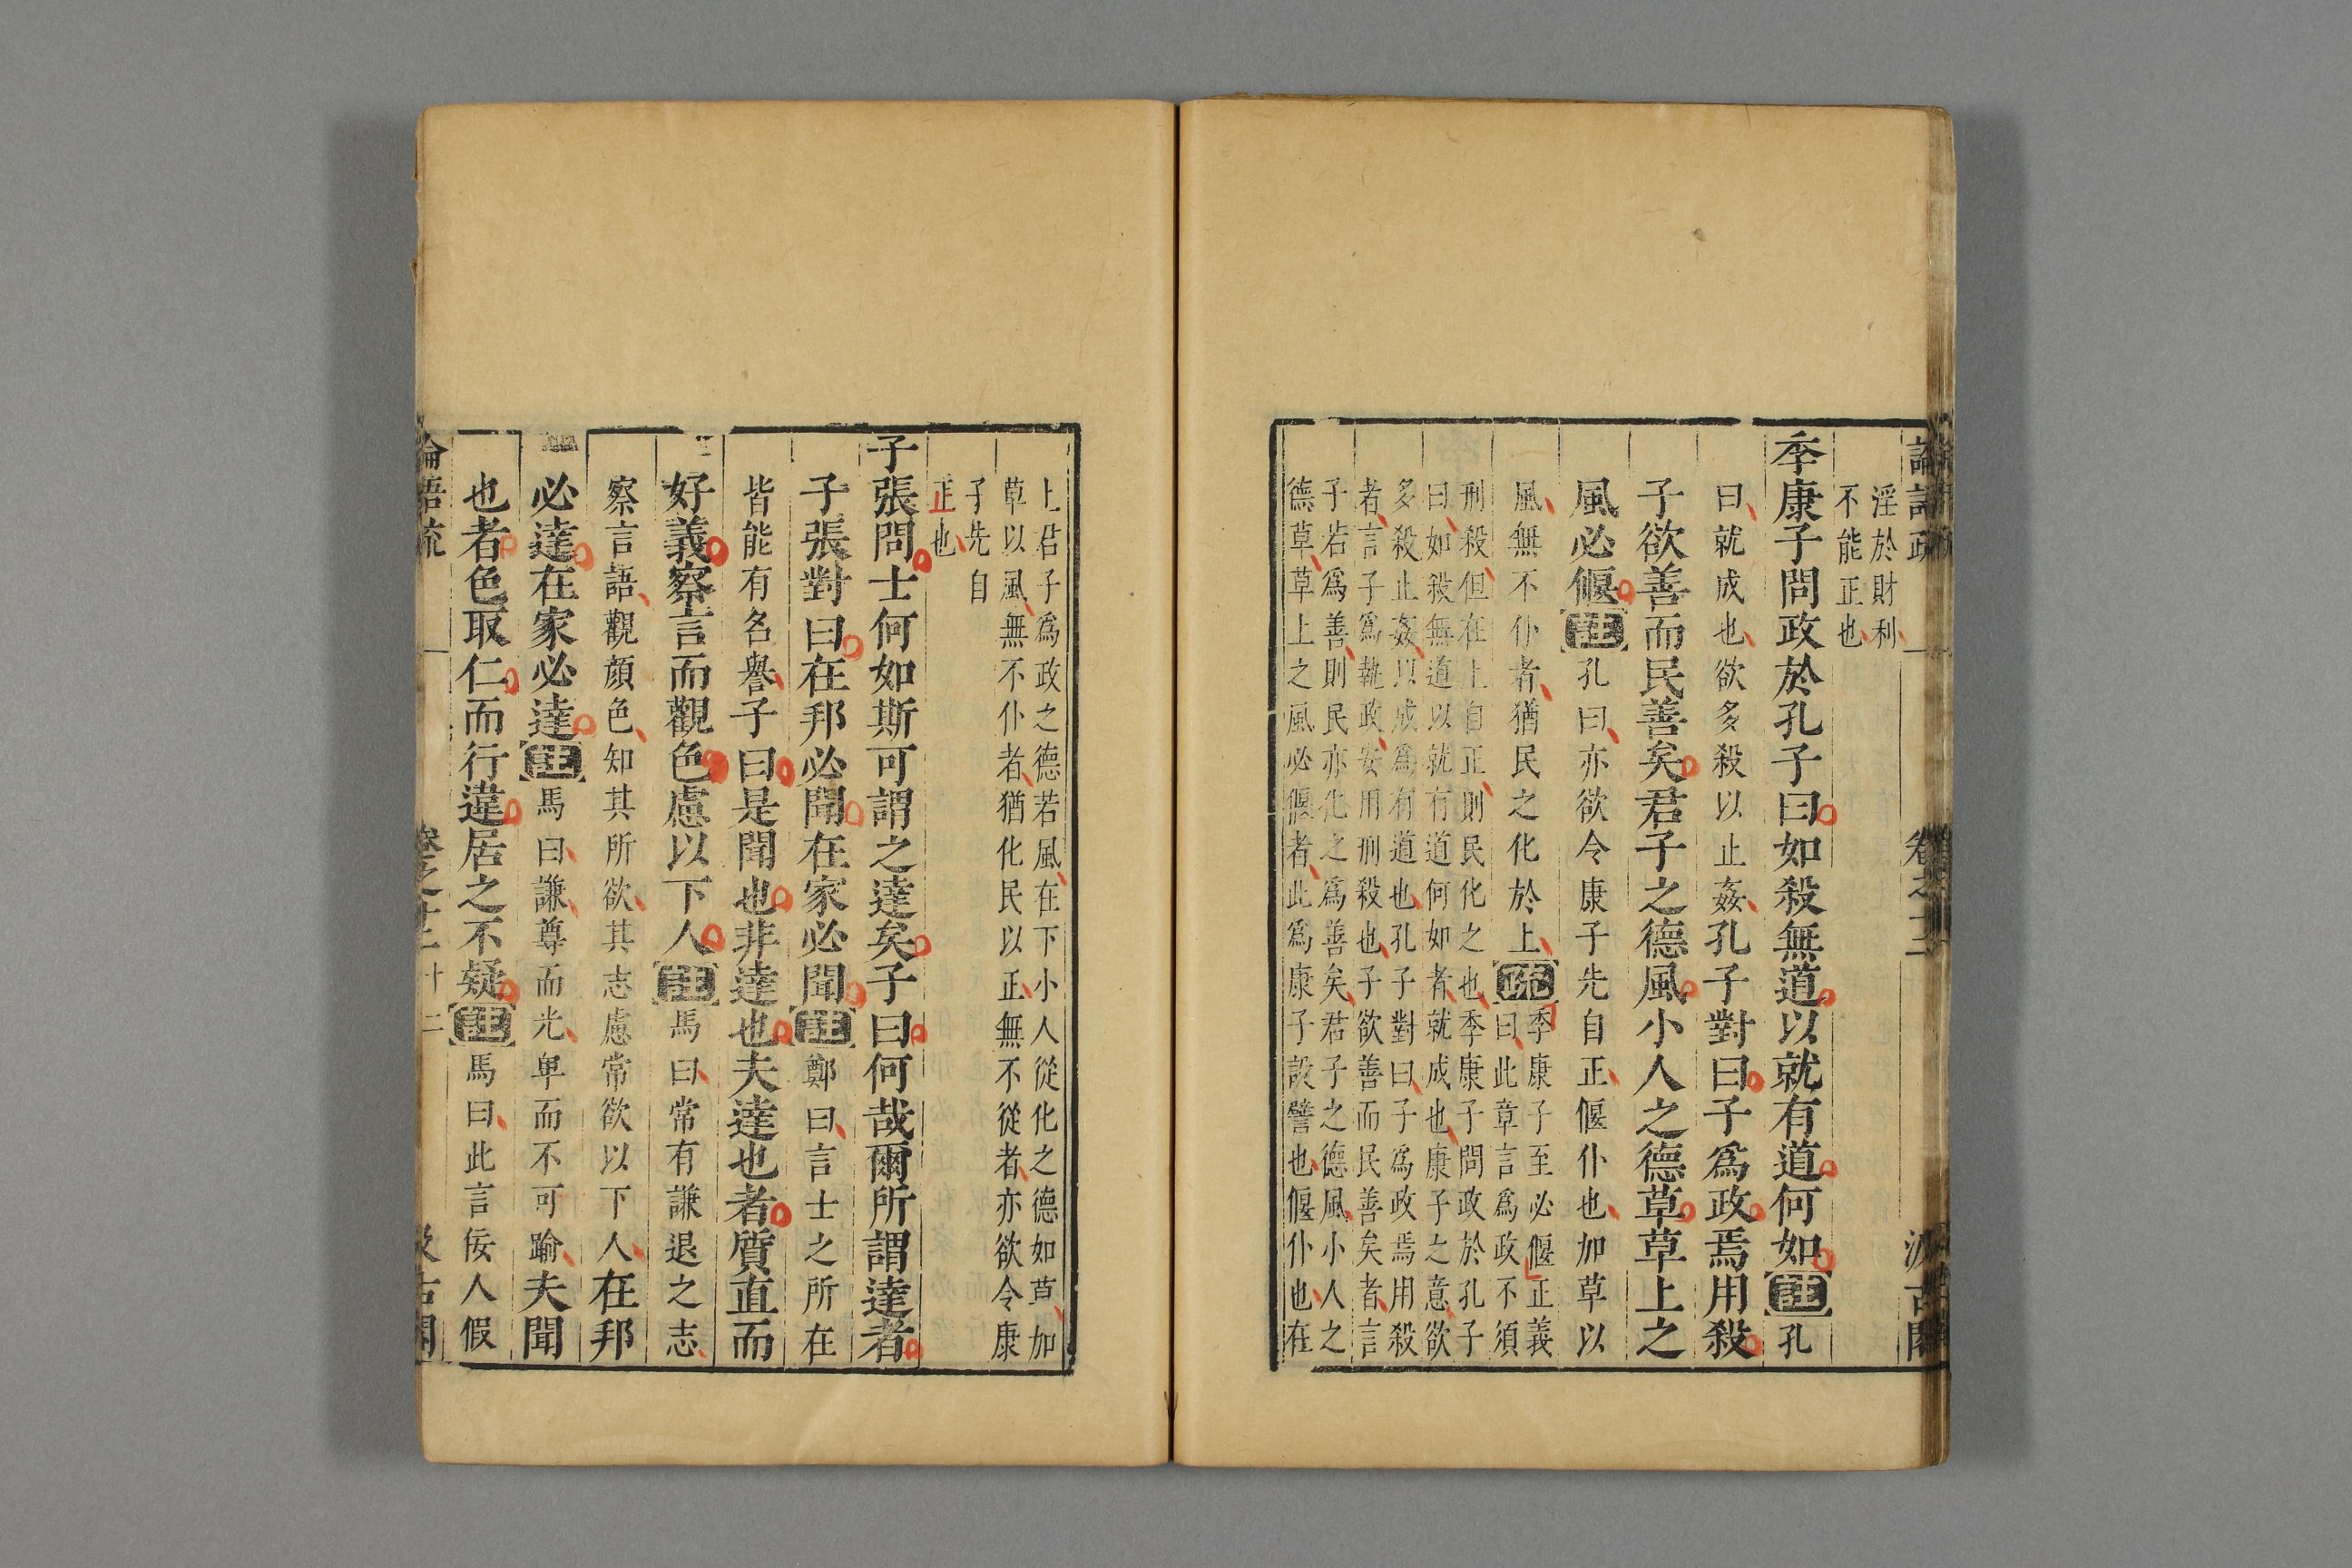 淫於財利
不能正也
季康子問政於孔子曰如殺無道以就有道何如註孔
曰就成也欲多殺以止姦孔子對曰子爲政焉用殺
子欲善而民善矣君子之德風小人之德草草上之
風必偃註孔曰亦欲令康子先自正偃仆也加草以
風無不仆者猶民之化於上疏季康子至必偃正義
曰此章言爲政不須
刑殺但在上自正則民化之也季康子問政於孔子
曰如殺無道以就有道何如者就成也康子之意欲
多殺止姦以成爲有道也孔子對曰子爲政焉用殺
者言子爲執政安用刑殺也子欲善而民善矣者言
子若爲善則民亦化之爲善矣君子之德風小人之
德草草上之風必偃者此爲康子設譬也偃仆也在
上君子爲政之德若風在下小人從化之德如草加
草以風無不仆者猶化民以正無不從者亦欲令康
子先自
正也
子張問士何如斯可謂之達矣子曰何哉爾所謂達者
子張對曰在邦必聞在家必聞註鄭曰言士之所在
皆能有名譽子曰是聞也非達也夫達也者質直而
好義察言而觀色慮以下人註馬曰常有謙退之志
察言語觀顏色知其所欲其志慮常欲以下人在邦
必達在家必達註馬曰謙尊而光卑而不可踰夫聞
也者色取仁而行違居之不疑註馬曰此言佞人假
論語疏 卷之十二 十二 汲古閣